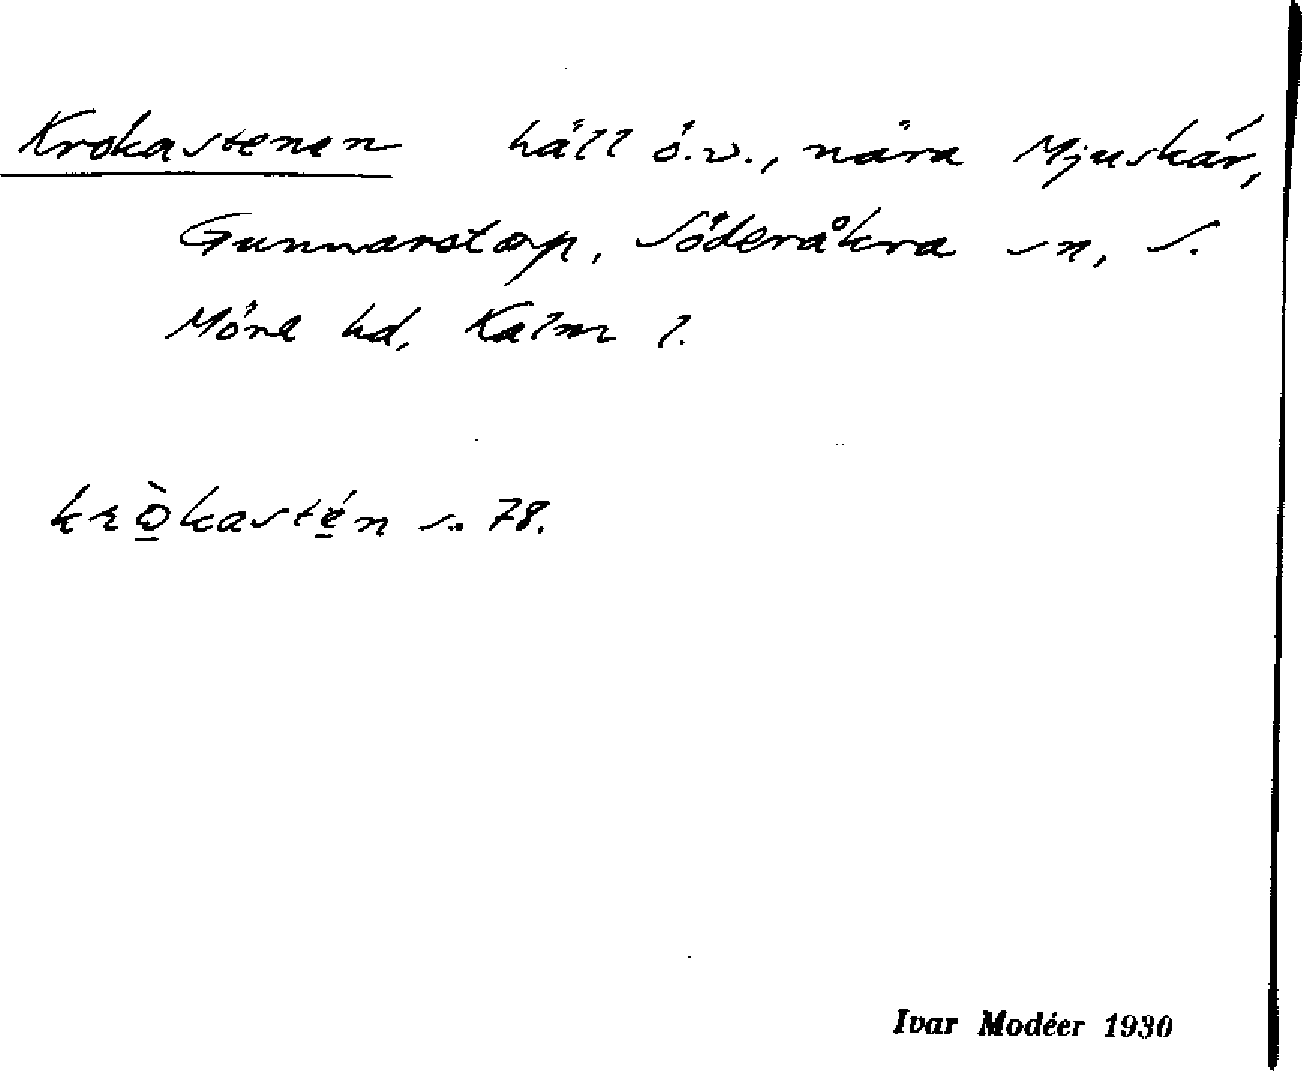 Krokastenen häll ö.v., nära Mjuskär,
Gunnarstorp, Söderåkra sn, S.
Möre hd, Kalm l.
krò̲kasté̲n s. 78.
Ivar Modéer 1930